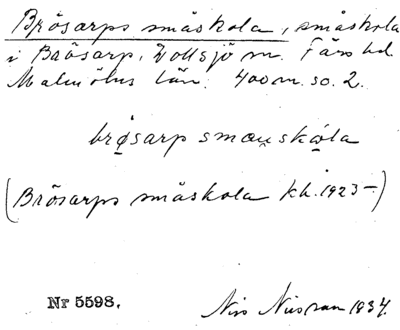 Brösarps småskola, småskola
i Brösarp, Zollsjö sn. Färs hd.
Malmöhus län. 400 m. so. 2.
brǫsarp smau̯skǫla
(Brösarps småskola kh. 1923–)
Nr 5598. Nils Nilsson 1934.